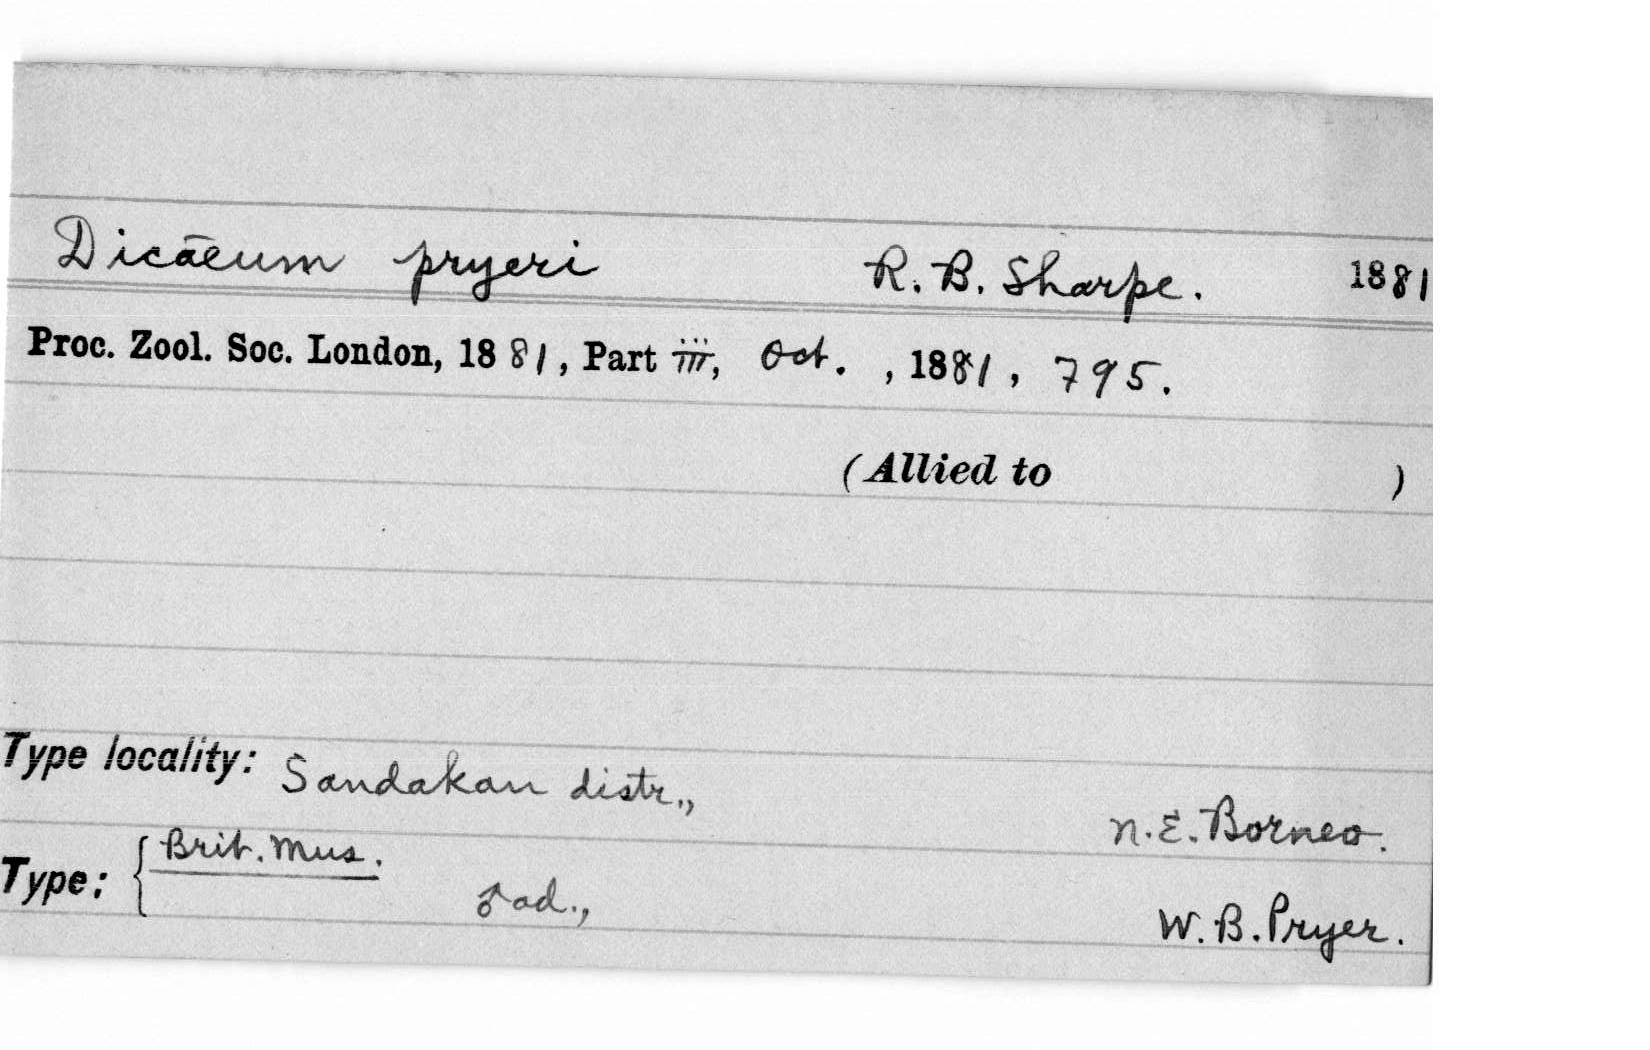 Dicaeum pryeri R. B. Sharpe. 1881
Proc. Zool. Soc. London, 1881, Part iii, Oct. , 1881, 795.
(Allied to )
Type locality: Sandakan distr.,
N. E. Borneo.
Type: { Brit. Mus.
♂ ad.,
W. B. Pryer.